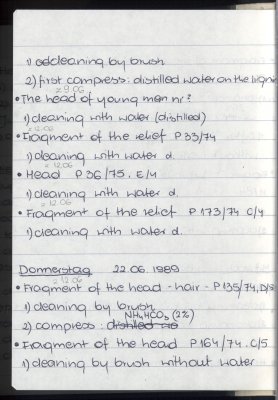 1) cleaning by brush
2) first compress: distilled water on the
z 9.06
• The head of young men nr?
1) cleaning with water (distilled)
z 12.06
• Fragment of the relief P 33/74
1) cleaning with water d.
z 12.06
• Head P 36/75. E/4
1) cleaning with water d.
z 12.06
• Fragment of the relief P 173/74 C/4
1) cleaning with water d.
Donnerstag 22.06.1989
z 12.06
• Fragment of the head - hair - P 135/74, D/5
1) cleaning by brush
NH4HCO3 (2%)
2) compress: distilled
• Fragment of the head P 164/74. C/5
1) cleaning by brush without water